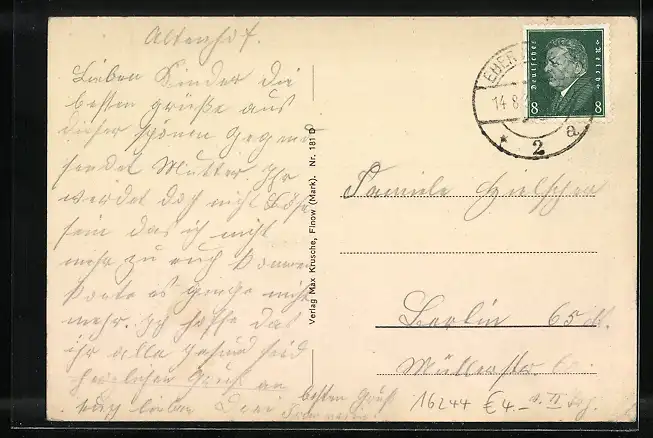 Altenhof.
Lieben Kinder die
besten grüße aus
dieser schönen gegend
sendet Mutter. Ihr
werdet doch nicht böse
sein das ich nicht
mehr zu euch kommen
konte es ginge nicht
mehr. Ich hoffe das
ihr alle gesund seid
herzlichen Gruß an
lieben
besten Gruß
Verlag Max Krusche, Finow (Mark). Nr. 181 D
EBER
14.8
* 2 a
Deutsches Reich
8 8
Familie
Berlin 65
Müllerstr.
16244 €4.-